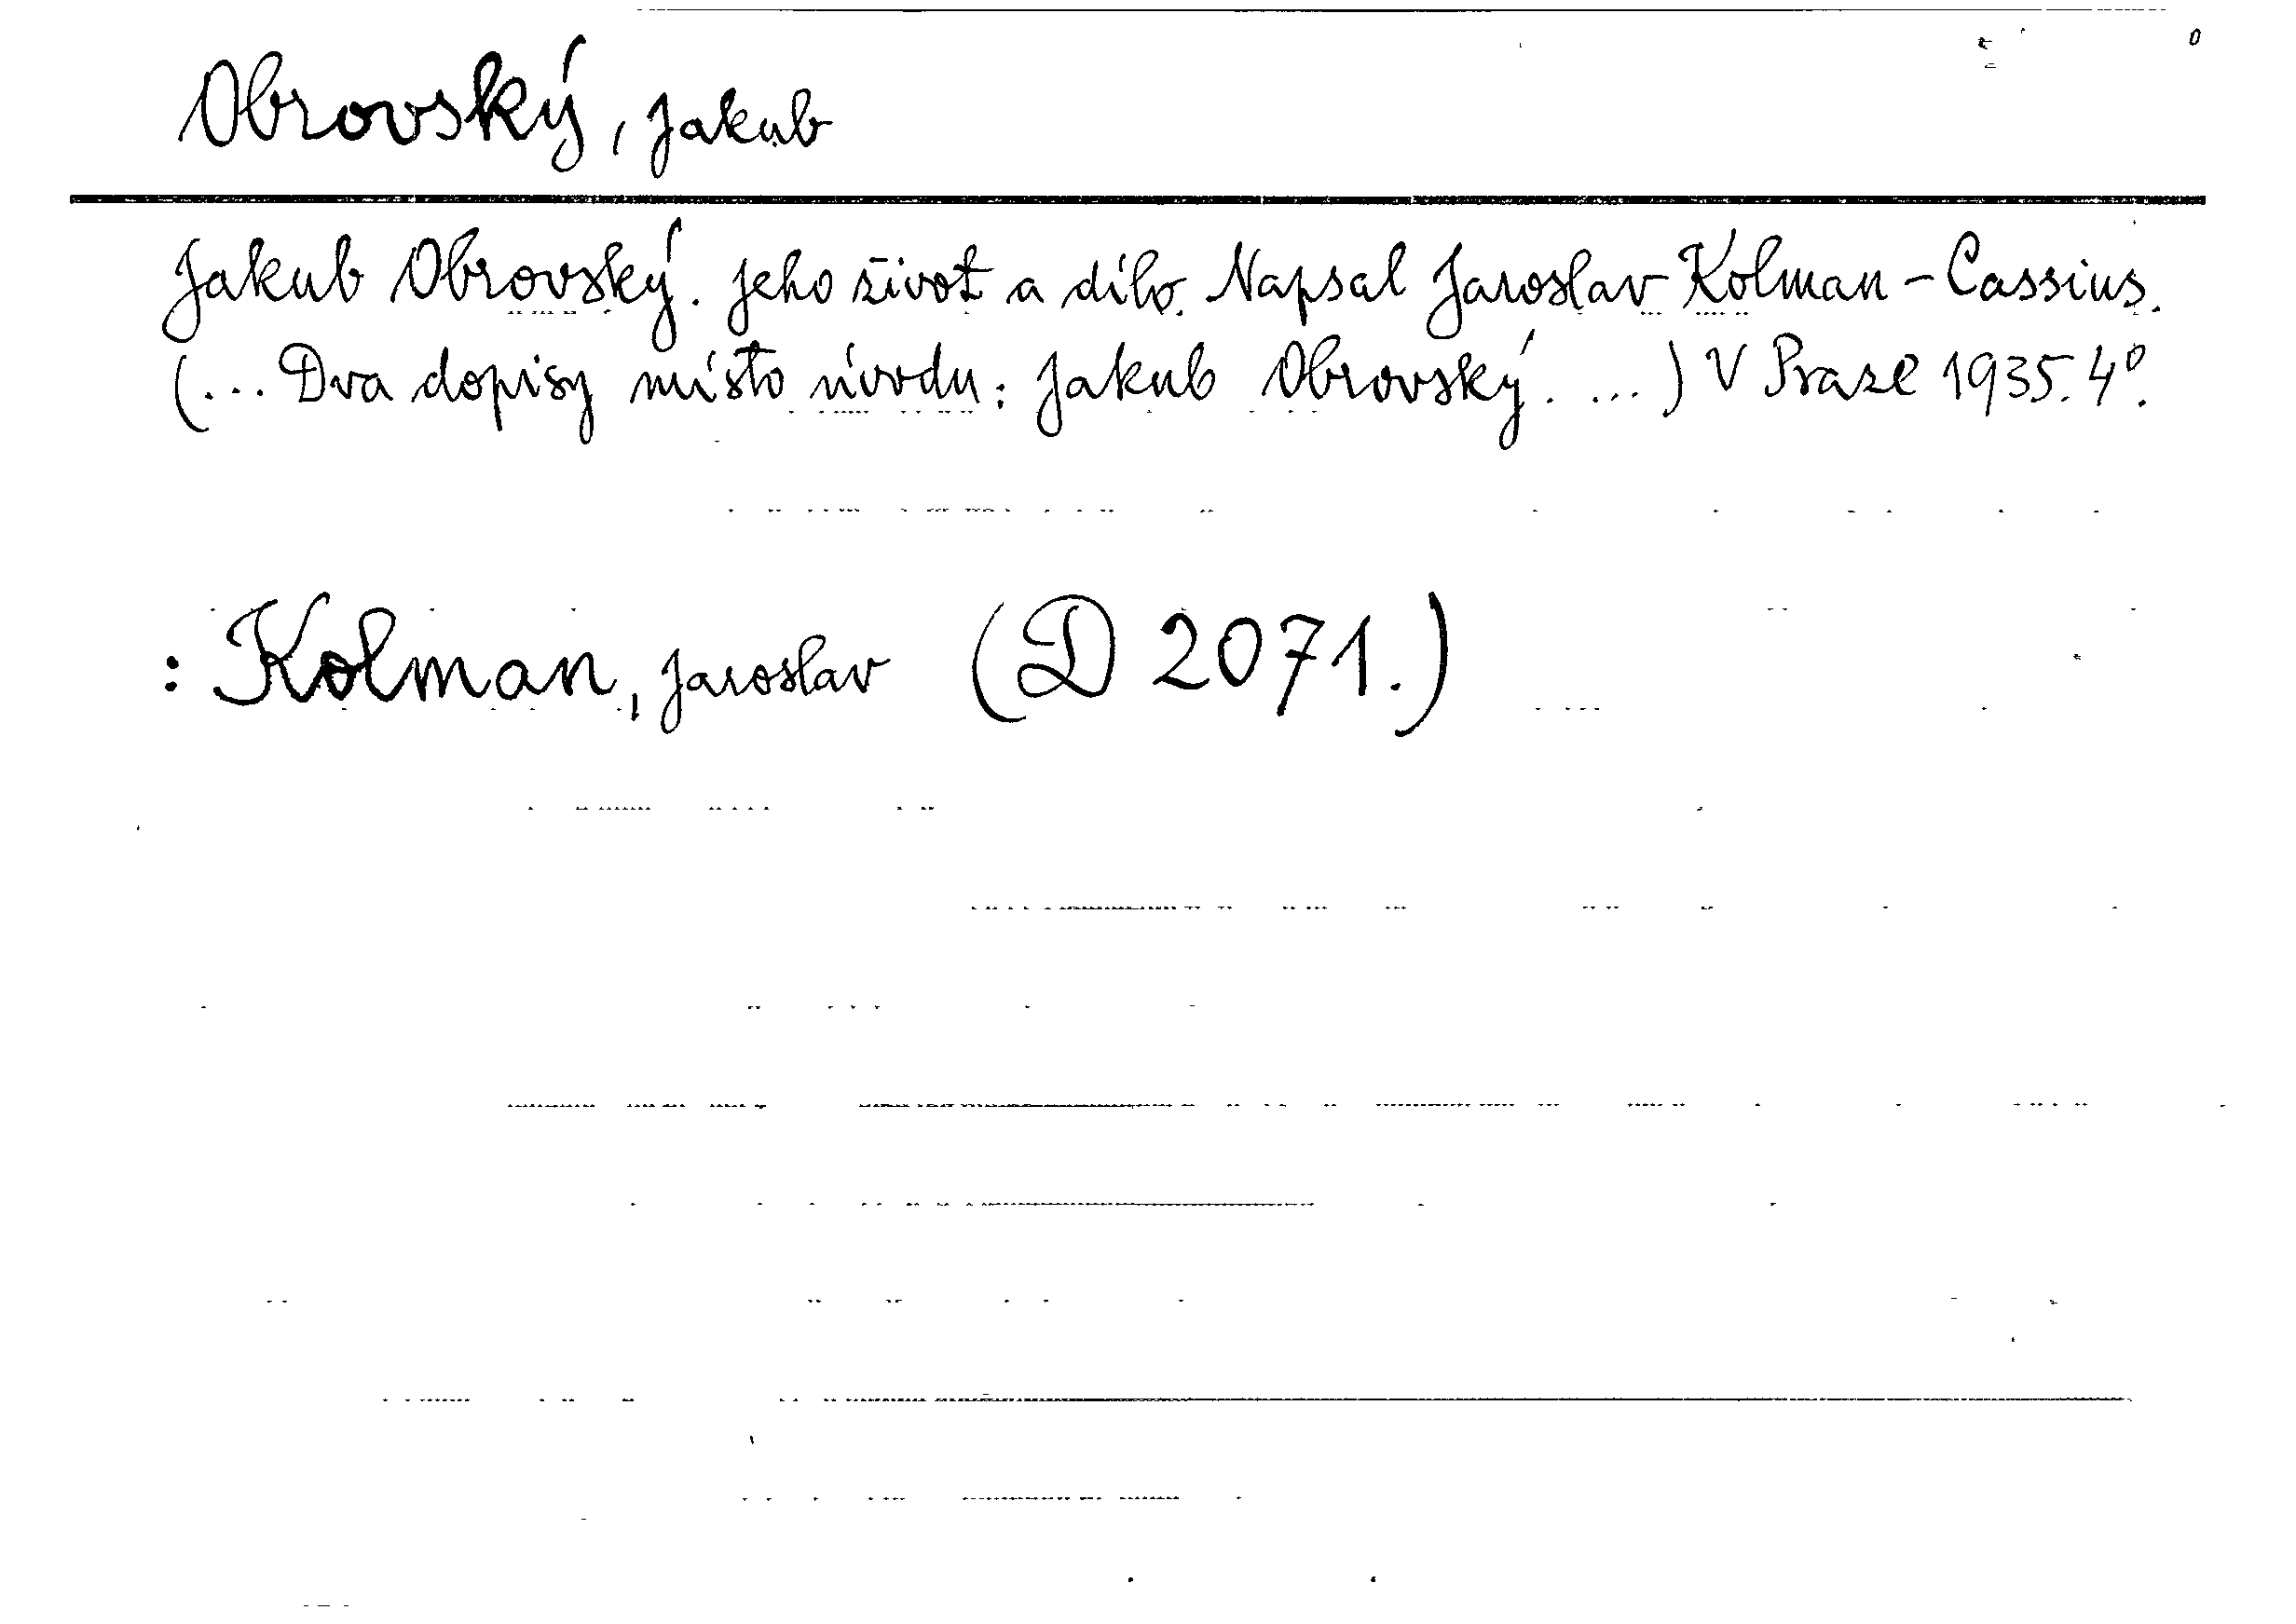 Obrovský, Jakub
Jakub Obrovský. Jeho život a dílo. Napsal Jaroslav Kolman - Cassius.
(... Dva dopisy místo úvodu: Jakub Obrovský. ...) V Praze 1935. 4°.
: Kolman, Jaroslav (D 2071.)